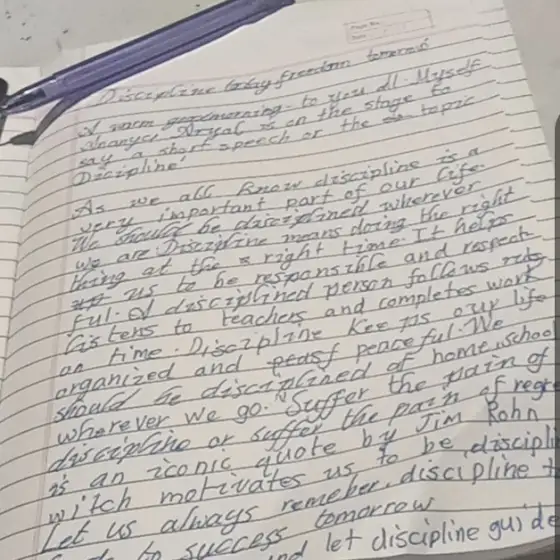 Page No.
Date
Discipline today freedom tomorrow
A warm goodmorning to you all. Myself
Ananya Aryal is on the stage to
say a short speech or the topic
Discipline'
As we all know discipline is a
very important part of our life.
We should be disciplined wherever
we are Discipline means doing the right
thing at the right time. It helps
us to be responsible and respect-
ful. A disciplined person follows rules
listens to teachers and completes work
on time. Discipline keeps our life
organized and peaceful. We
should be disciplined at home, school
wherever we go. "Suffer the pain of
discipline or suffer the pain of regre
is an iconic quote by Jim Rohn
witch motivates us to be discipli
Let us always remeber, discipline
to success tomorrow
and let discipline guide